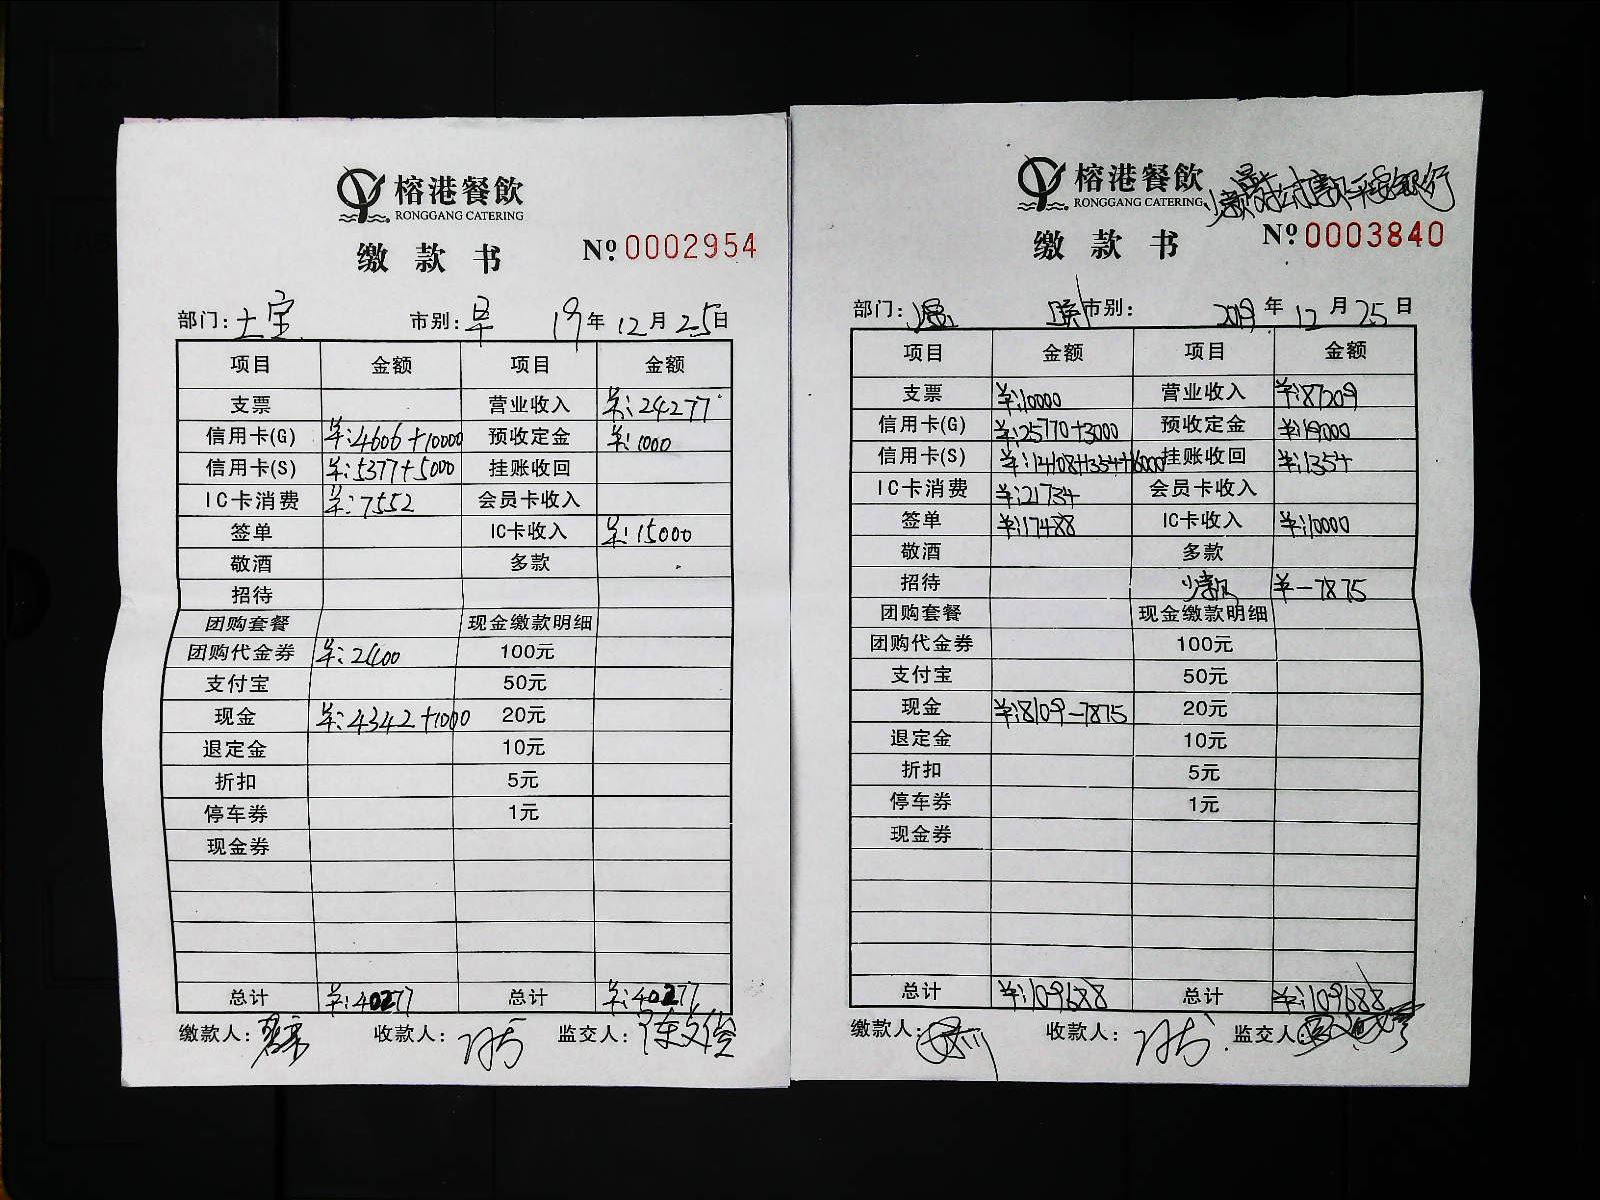 榕港餐飲
RONGGANG CATERING
缴款书 №0002954
部门: 市别:早 19年12月25日
项目 金额 项目 金额
支票 营业收入 ¥:24277
信用卡(G) ¥:4606+10000 预收定金 ¥:1000
信用卡(S) ¥:5377+5000 挂账收回
IC卡消费 ¥:7552 会员卡收入
签单 IC卡收入 ¥:15000
敬酒 多款
招待
团购套餐 现金缴款明细
团购代金券 ¥:2400 100元
支付宝 50元
现金 ¥:4342+1000 20元
退定金 10元
折扣 5元
停车券 1元
现金券
总计 ¥:40277 总计 ¥:40277
缴款人: 收款人: 监交人:
榕港餐飲
RONGGANG CATERING
缴款书 №0003840
部门: 市别: 2019年12月25日
项目 金额 项目 金额
支票 ¥:10000 营业收入 ¥:87209
信用卡(G) ¥:25770+3000 预收定金 ¥:19000
信用卡(S) ¥:14108+1354+16000 挂账收回 ¥:1354
IC卡消费 ¥:21734 会员卡收入
签单 ¥:17488 IC卡收入 ¥:10000
敬酒 多款
招待 少款 ¥-7875
团购套餐 现金缴款明细
团购代金券 100元
支付宝 50元
现金 ¥:8109-7875 20元
退定金 10元
折扣 5元
停车券 1元
现金券
总计 ¥:109688 总计 ¥:109688
缴款人: 收款人: 监交人: